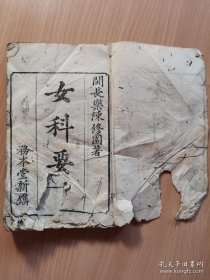 閩長樂陳修園著
女科要
務本堂新鐫